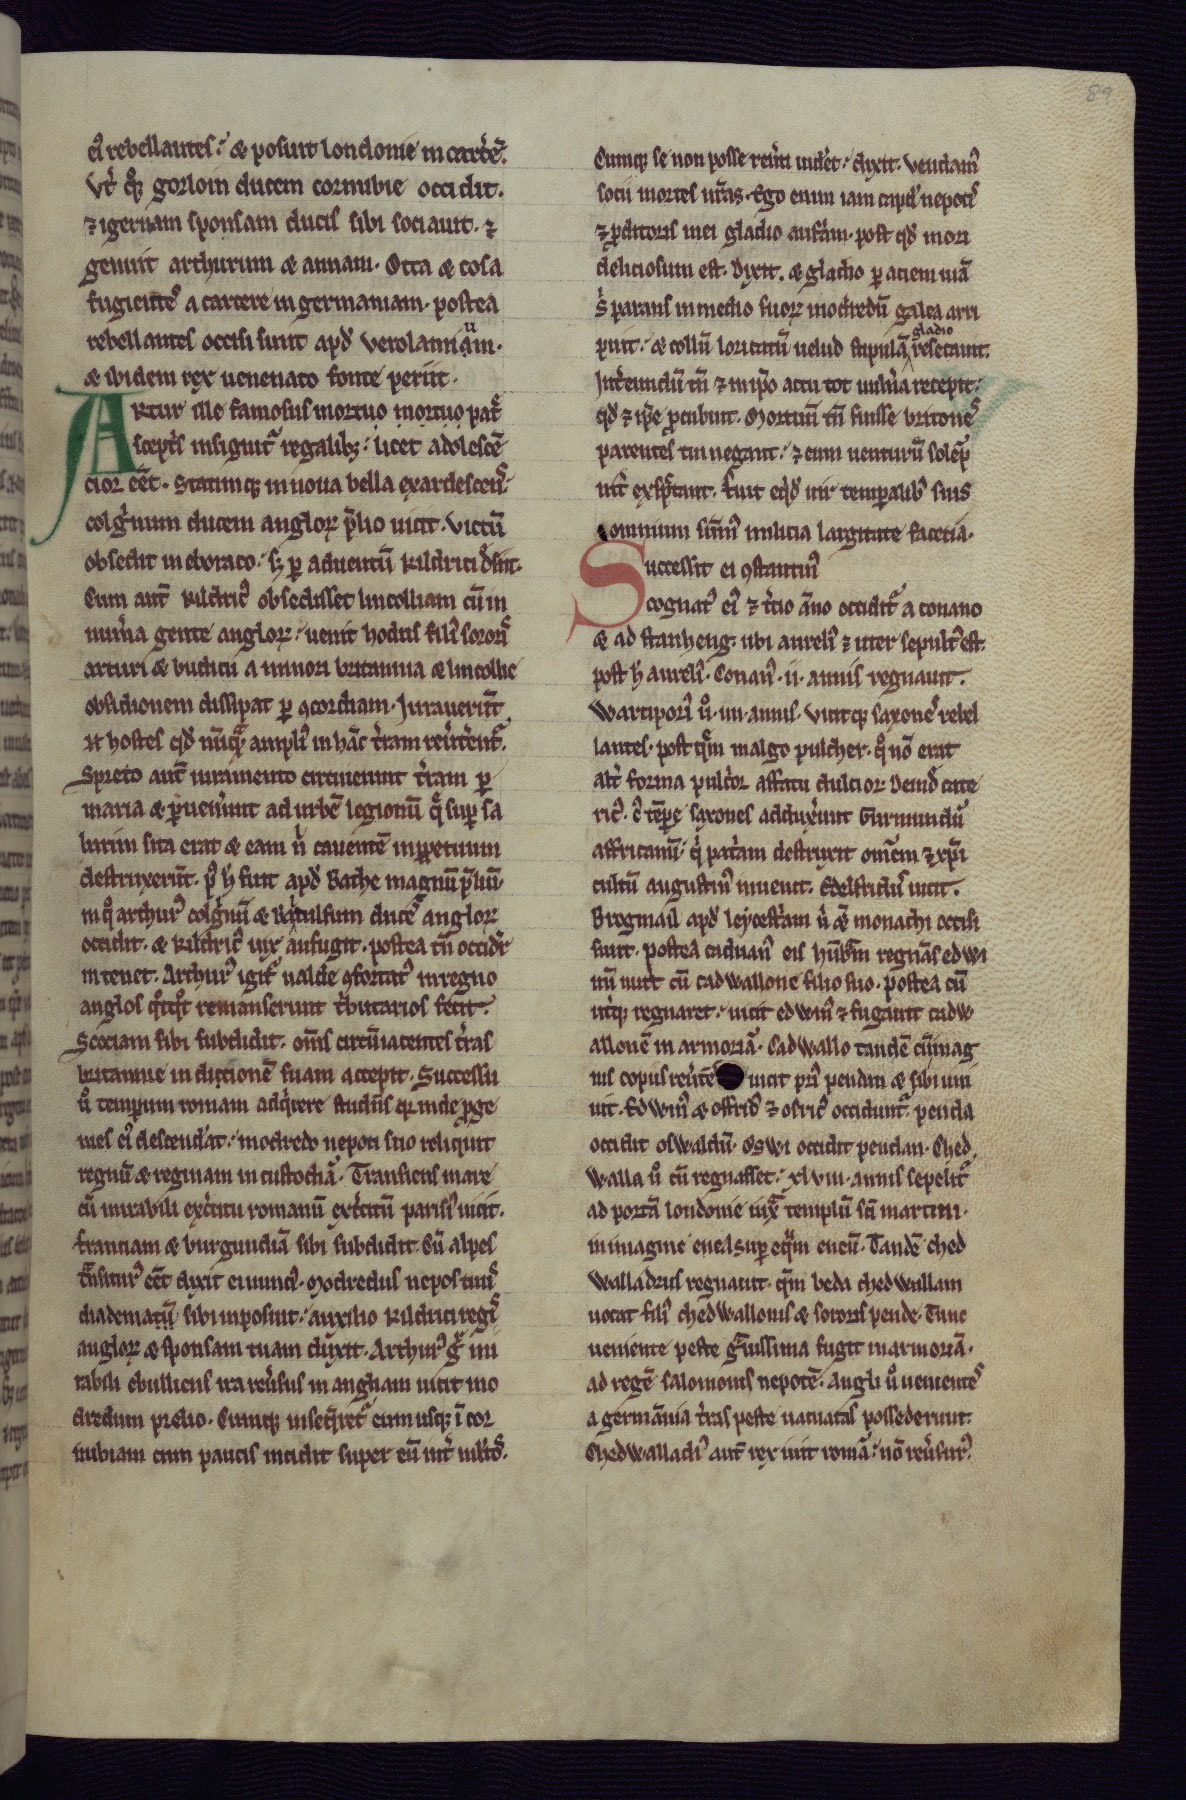 89
ei᷒ rebellantes: & posuit londonie in carcẽ.
Vt̉ q̊ꝫ gorloin ducem cornubie occidit.
⁊ igernam sponsam ducis sibi sociauit. ⁊
genuit arthurum & annam. Otta & cosa
fugientes a carcere in germaniam. postea
rebellantes occisi sunt apd̉ verolamium.
& ibidem rex uenenato fonte periit.
Artur ille famosus mortuo mortuo pat̉
scept̉s insignit᷑ regalibꝫ: licet adolescẽ
cior eẽt. Statimqꝫ in noua bella exardescens.
colg̉num ducem angloꝝ p̃lio uicit. Victũ
obsedit in eboraco: sꝫ ꝑ aduentũ kildrici
Cum aut̃ kildric᷒ obsedisset lincolliam cũ in
num̉a gente angloꝝ: uenit hoelus fili᷒ soror᷒
arturi & budicii a minori britannia & lincollie
obsidionem dissipat ꝑ ꝯcordiam. Jurauerũt
ut hostes qd̉ nũq̃ ampli᷒ in hãc t̉ram reu̓terent᷑.
Spreto aut̃ iuramento circuierunt t̉ram ꝑ
maria & ꝑuener̃unt ad urbẽ legionũ q̃ suꝑ sa
brim sita erat & eam ñ cauentẽ inꝑpetuum
destruxer̃t. p᷒ h fuit apd̉ Bathe magnũ p̃liũ.
in q̊ arthur᷒ colg̉nũ & ducẽ angloꝝ
occidit. & kildric᷒ uix aufugit. postea tñ occid̃r
in tenet. Arthur᷒ igit᷑ ualde ꝯfortat᷒ in regno
anglos q̊tq̊t remanserunt t̉butarios fecit.
Scociam sibi subdidit. om̃s circũiacentes t̉ras
britannie in dictionẽ suam accepit. Successu
u̓ tempꝝum romam adq̉rere studuĩs qꝛ inde ꝓge
nies ei᷒ descend̓at: modredo nepoti suo reliquit
regnũ & reginam in custodiã. Transiens mare
cũ mirabili exc̉itu romanũ exc̉citũ parisi᷒ uicit.
franciam & burgundiã sibi subdidit. Cũ alpes
t̃nsitur᷒ eẽt dixit ei nunci᷒. Modredus nepos tuus
diadema tuũ sibi inposuit: auxilio kildrici regis
angloꝝ & sponsam tuam duxit. Arthur᷒ g̊ mi
rabili ebulliens ira reu̓sus in angliam uicit mo
dredum prelio. Cumqꝫ inseq̉ret᷑ eum usqꝫ ĩ cor
nubiam cum paucis incidit super eũ int̉ mlt̃os.
Cumqꝫ se non posse retin̉i uid̓et: dixit. Vendam᷒
socii mortes ñras. Ego enim iam capd̓ nepotis
⁊ ꝓditoris mei gladio aufãm. post qd̉ mori
deliciosum est. Dixit. & gladio ꝑ aciem uiã
s̉ parans in medio suoꝝ modredũ galea arri
puit: & collũ loricatũ uelud stipulã gladio resecauit.
Int̉eundũ tñ ⁊ in ip̃o actu tot uuln̉a recepit:
qd̉ ⁊ ip̃e ꝓcubuit. Mortuũ tñ fuisse britones
parentes tui negant: ⁊ eum uenturũ solẽp
nit̉ exspectant. fuit eqd̉ uir temꝑalib᷒ suis
omnium sum̃᷒ milicia largitate facetia.
Successit ei ꝯstantin᷒
cognat᷒ ei᷒ ⁊ t̉cio ãno occidit᷑ a conano
& ad stanheng. ubi aureli᷒ ⁊ uter sepult᷒ est.
post h̉ aureli᷒. Conan᷒. ii. annis regnauit.
Wortipori᷒ u̓. iiii. annis. Vicitqꝫ saxones rebel
lantes. post quẽm malgo pulcher. q̊ nõ erat
alt̉ forma pulc̓or affatu dulcior. Deind̓ cate
ric᷒. c̉ tẽpe saxones adduxer̃unt Gurmundũ
affricanũ: q̉ pat̉am destruxit om̃em ⁊ xp̃i
cultũ augustin᷒ inuenit. Edelfrid᷒ uicit.
Brogmail apd̉ leycestr̃am u̓ & monachi occisi
sunt. postea caduan᷒ eis hũbr̃m regnãs edwi
nũ nutt cũ cadwallone filio suo. postea cũ
ut̉qꝫ regnaret: uicit edwin᷒ ⁊ fugauit cadw
allonẽ in armoriã. Cadwallo tandẽ cũ mag
nis copiis reu̓tẽs uicit pri᷒ pendam & sibi uni
uit. Edwin᷒ & offrid᷒ ⁊ osric᷒ occidunt᷑. penda
occidit oswaldũ. Oswi occidit pendan. Ched
walla u̓ cũ regnasset: xl viii. annis sepelit᷑
ad portã londonie iuxta templũ sc̃i martini.
in imagine enea suꝑ eq̃m eneũ. Tandẽ ched
walladrus regnauit. quẽm beda chedwallam
uocat fili᷒ chedwallonis & sororis pende. Tunc
ueniente peste grauissima fugit in armoriã.
ad regẽ salomonis nepotẽ. Angli u̓ uenientes
a germãnia t̉ras peste uacuatas possederunt.
Chedwalladr᷒ aut̃ rex iuit romã: nõ reu̓sur᷒.